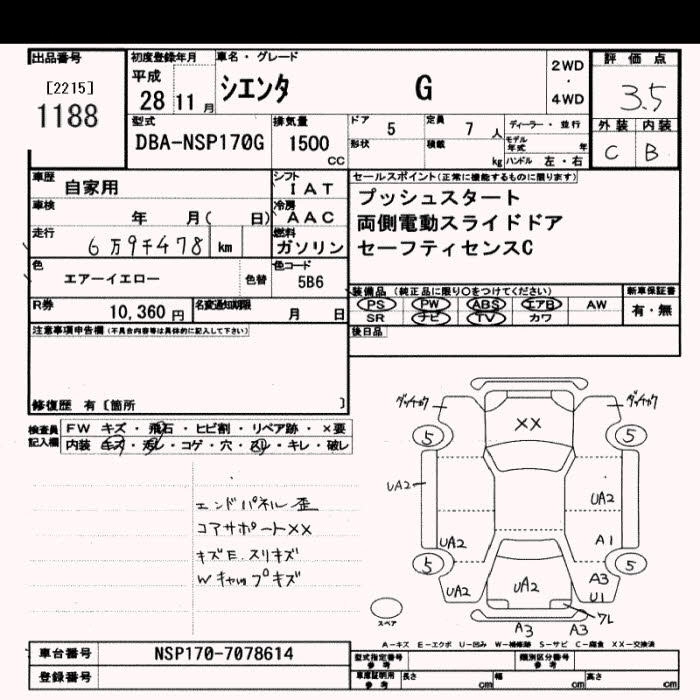 出品番号
[2215]
1188
初度登録年月
平成
28 11 月
車名・グレード
シエンタ G
2WD
・
4WD
評価点
3.5
外装 内装
C B
型式
DBA-NSP170G
排気量
1500
CC
ドア 5
定員 7 人
形状
積載 kg
ディーラー・並行
モデル年式 年
ハンドル 左・右
車歴 自家用
シフト IAT
車検 年 月( 日)
冷房 AAC
走行 6万9千478 km
燃料 ガソリン
色 エアーイエロー 色替
色コード 5B6
R券 10,360 円
名変通知期限 月 日
セールスポイント(正常に機能するものに限ります)
プッシュスタート
両側電動スライドドア
セーフティセンスC
装備品 (純正品に限り○をつけてください)
新車保証書
PS PW ABS エアB AW
SR ナビ TV カワ
有・無
後日品
注意事項申告欄 (不具合内容等は具体的に記入して下さい)
修復歴 有 〔箇所 〕
検査員記入欄
FW キズ・飛石・ヒビ割・リペア跡・×要
内装 キズ・汚レ・コゲ・穴・スレ・キレ・破レ
エンドパネル歪
コアサポートXX
キズE.スリキズ
Wキャップキズ
XX
5 5
UA2
UA2
UA2 A1
5 5
UA2 UA2 A3
U1
ワレ
A3 A3
スペア
A−キズ E−エクボ U−凹み W−補修跡 S−サビ C−腐食 XX−交換済
車台番号 NSP170-7078614
登録番号
型式指定番号 参考
類別区分番号 参考
車庫証明用 参考
長さ cm
幅 cm
高さ cm